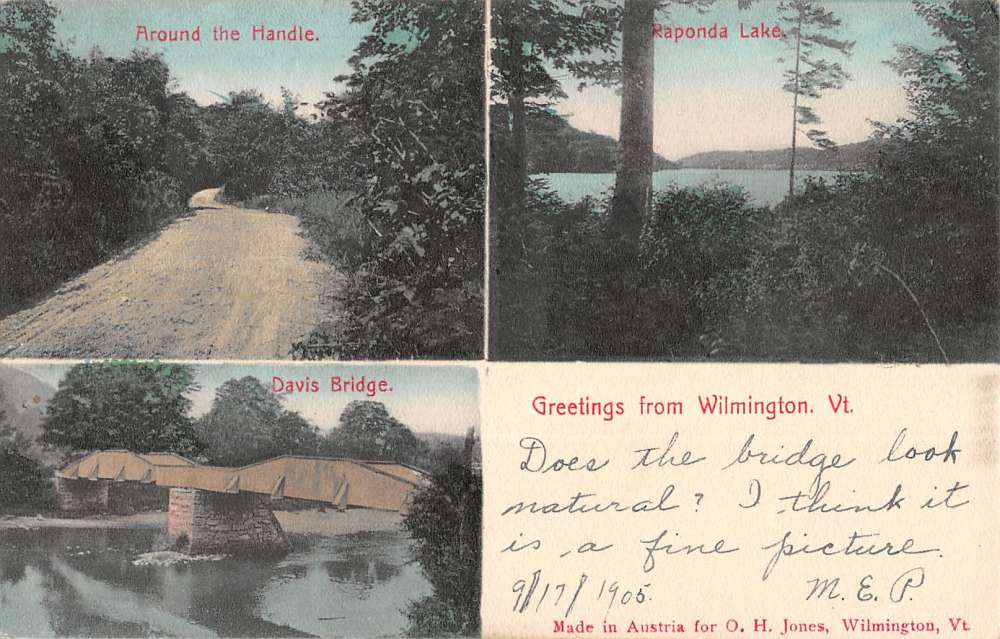 Around the Handle.
Raponda Lake.
Davis Bridge.
Greetings from Wilmington. Vt.
Does the bridge look
natural? I think it
is a fine picture.
9/17/1905.
M. E. P.
Made in Austria for O. H. Jones, Wilmington, Vt.